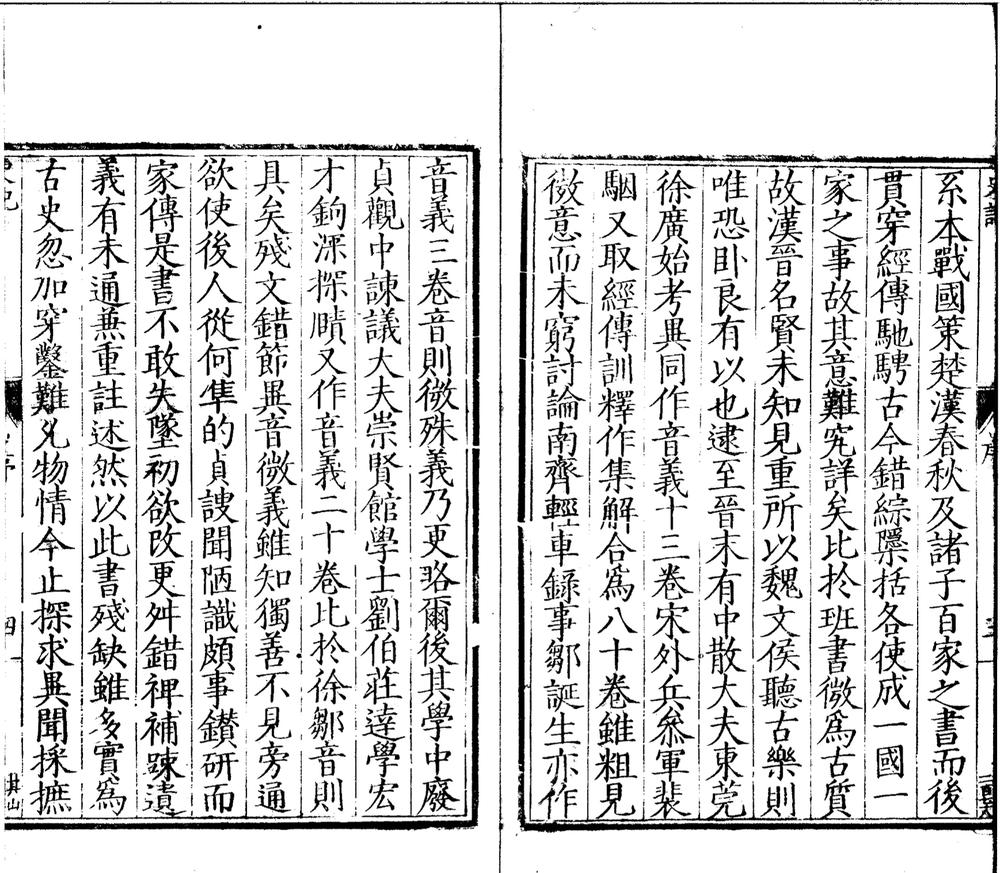 系本戰國策楚漢春秋及諸子百家之書而後
貫穿經傳馳騁古今錯綜隱括各使成一國一
家之事故其意難究詳矣比於班書微爲古質
故漢晉名賢未知見重所以魏文侯聽古樂則
唯恐卧良有以也逮至晉末有中散大夫東莞
徐廣始考異同作音義十三卷宋外兵叅軍裴
駰又取經傳訓釋作集解合爲八十卷雖粗見
微意而未窮討論南齊輕車録事鄒誕生亦作
音義三卷音則微殊義乃更略爾後其學中廢
貞觀中諫議大夫崇賢館學士劉伯莊達學宏
才鉤深探賾又作音義二十卷比於徐鄒音則
具矣殘文錯節異音微義雖知獨善不見旁通
欲使後人從何凖的貞謏聞陋識頗事鑚研而
家傳是書不敢失墜初欲改更舛錯裨補踈遺
義有未通兼重註述然以此書殘缺雖多實爲
古史忽加穿鑿難允物情今止探求異聞採摭